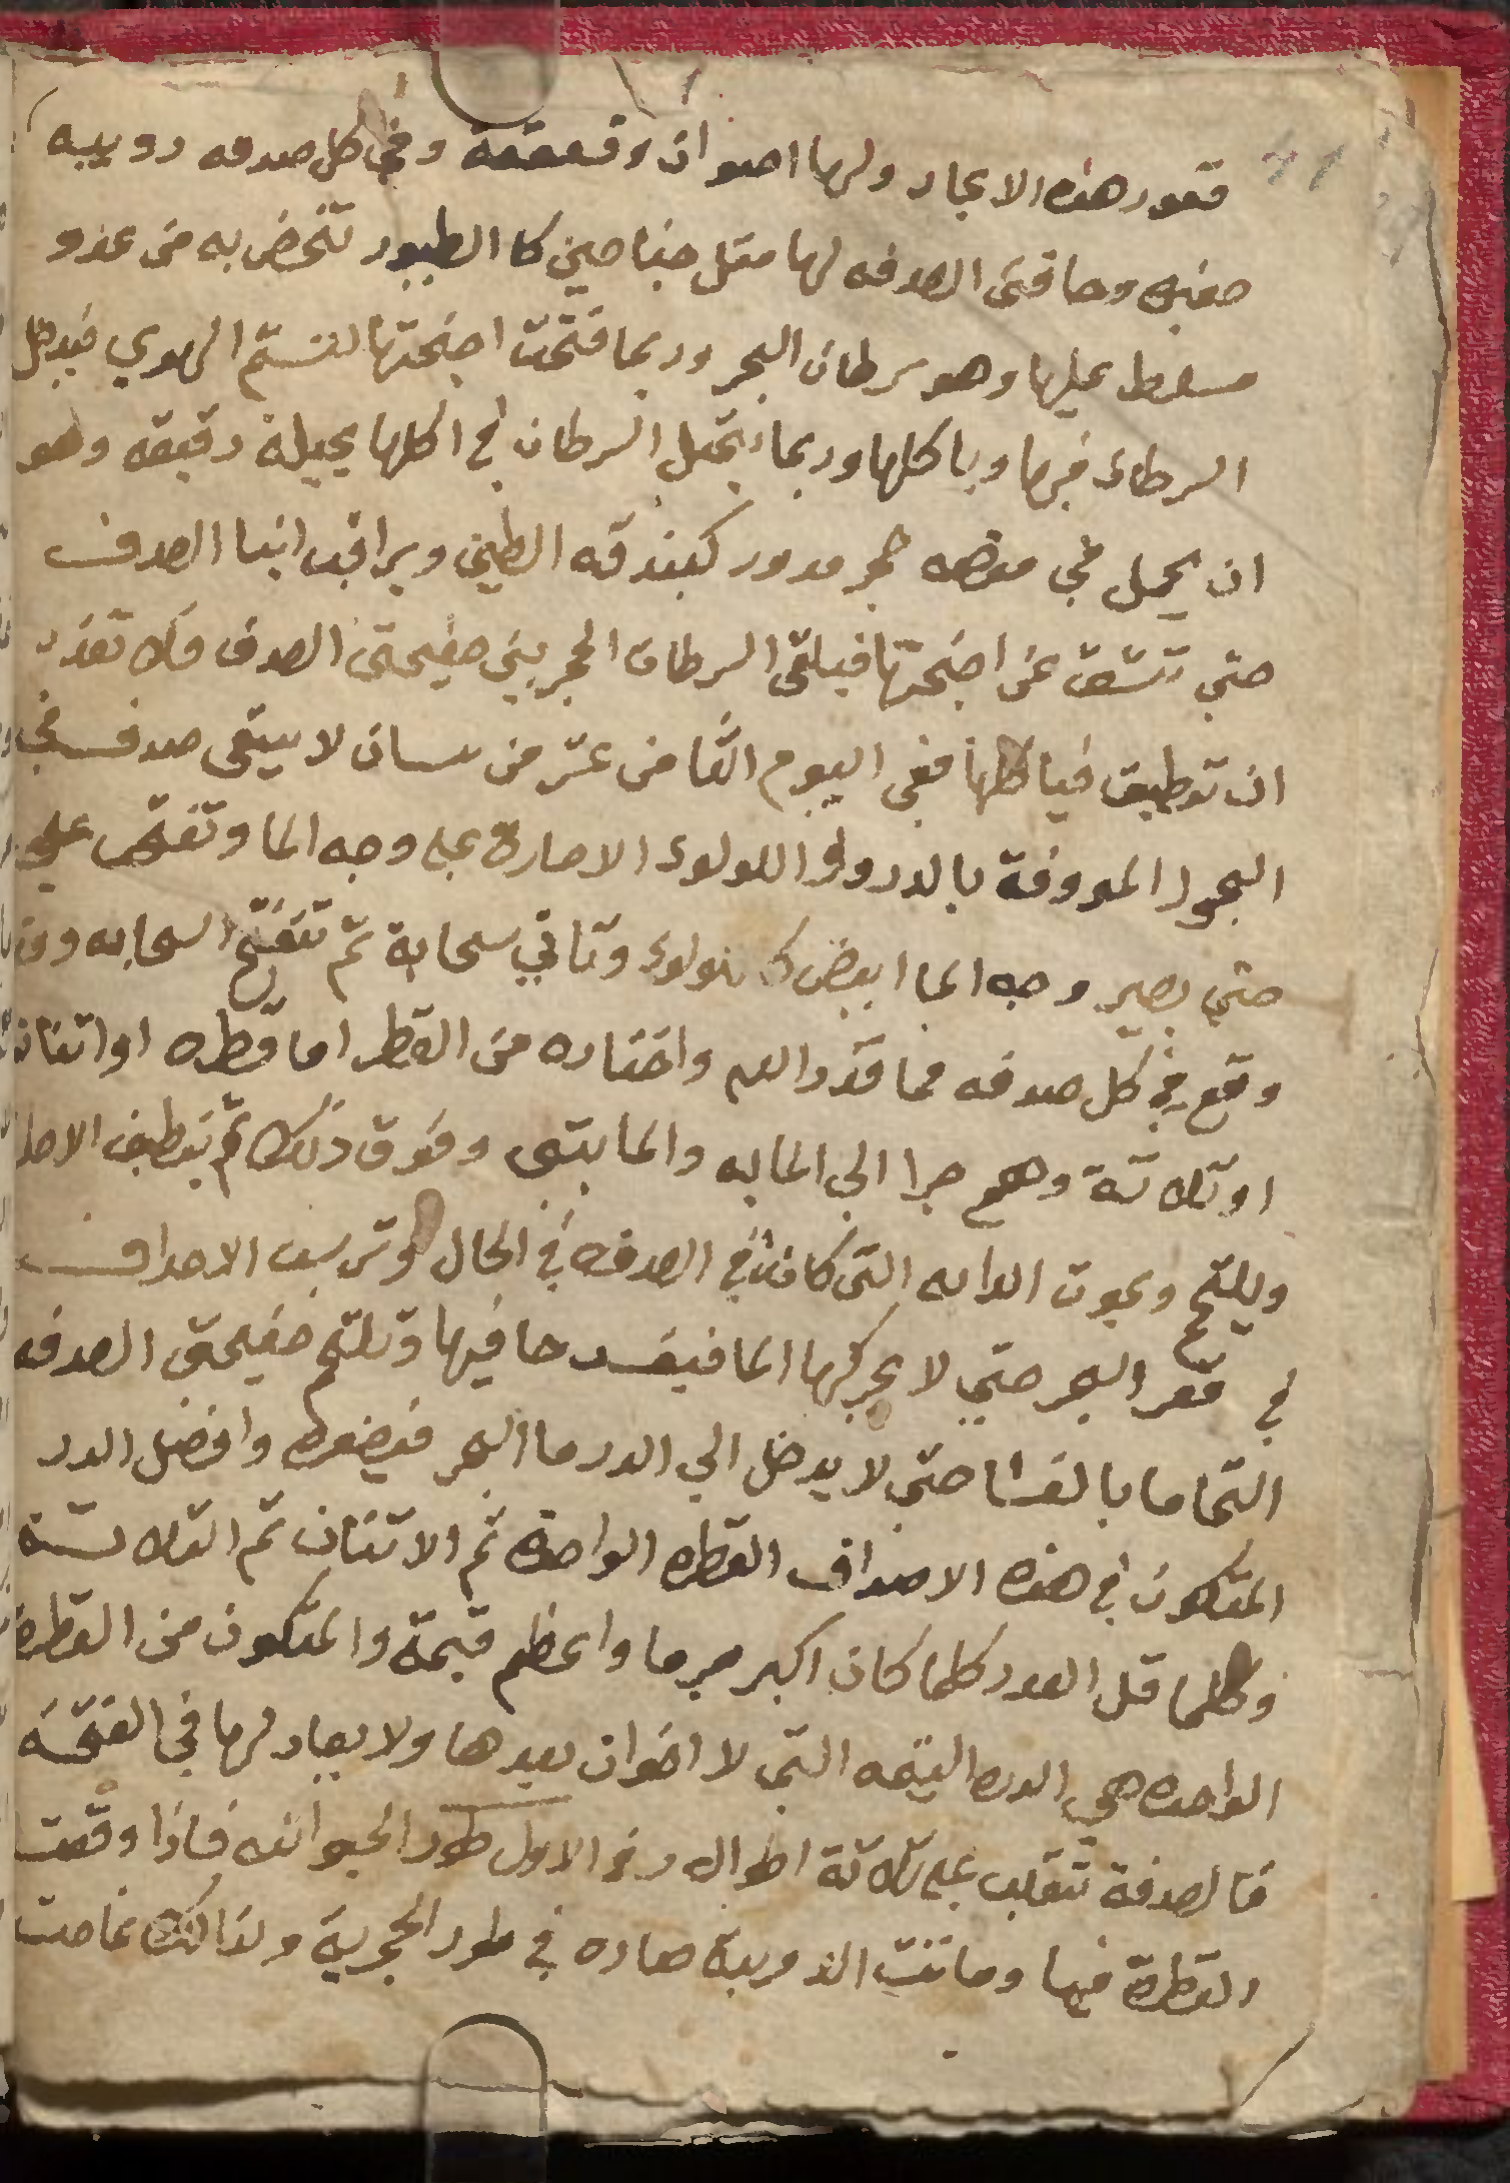 قعور هذه الابحار ولها اصوات وقعقعة وفي كل صدفه دويبه
صغيره وحافتى الصدفه لها مثل جناحين كا الطيور تتحض به من عدو
مسلط عليها وهو سرطان البحر وربما فتحت اجنحتها لتنسم الهوي فيدخل
السرطان فيها وياكلها وربما يتحيل السرطان في اكلها بحيلة دقيقه وهو
ان يحمل في مقصه حجر مدور كبندقه الطين ويراقب ابنا الصدف
حتي تنشق عن اجنحتها فيلقى السرطان الحجر بين صفيحتى الصدف فلا تقدر
ان تطبق فياكلها ففى اليوم الثامن عشر من نيسان لا يبقى صدف في
البحور المعروفة بالدر واللولوء الا صارة على وجه الما وتفتح على
حتي يصير وجه الما ابيض كاللولوء وتاتي سحابة ثم تنفتح السحابه وقد
وقع في كل صدفه مما قدر الله واختاره من القطر اما قطره او اثنان
او ثلاثة وهلم جرا الي المايه والمايتى وفوق ذلك ثم ينطبق الاصد
ويلتحم ويموت الدابه التى كانت في الصدفه في الحال وترسب الاصداف
في قعر البحر حتي لا يحركها الما فيفسد ما فيها وتلتحم صفيحتى الصدفه
التحاما بالغا حتي لا يدخل الي الدر ما البحر فيصفره وافضل الدر
المتكون في هذه الاصداف القطره الواحدة ثم الاثنان ثم الثلاثة
وكلما قل العدد كلما كان اكبر جرما واعظم قيمة والمتكون من القطرة
الواحده هي الدره اليتيمه التي لا اخوات بعدها ولا يعادلها في القيمة
فالصدفة تنقلب على ثلاثة اطوال في الاول طور الحيوانيه فاذا وقعت
القطرة فيها وماتت الدويبة صاره في طور الحجرية ولذالك غاصت